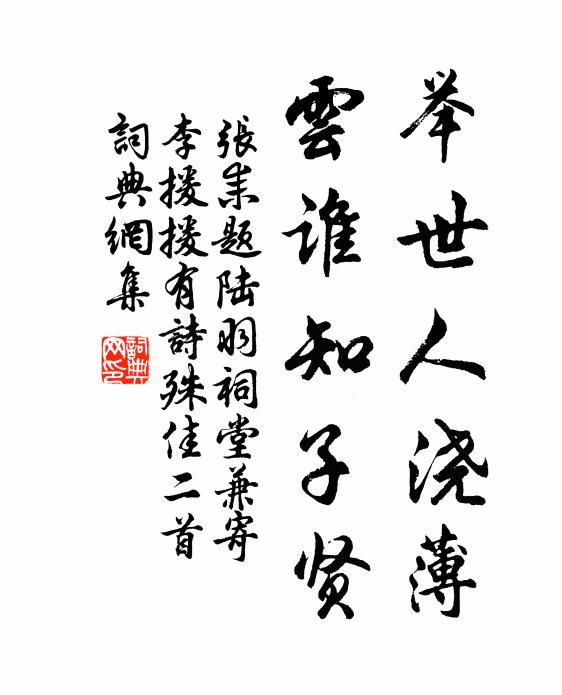 举世人浇薄
雲谁知子贤
張耒题陆羽祠堂兼寄
李援援有詩殊佳二首
詞典網集
詞典
网印